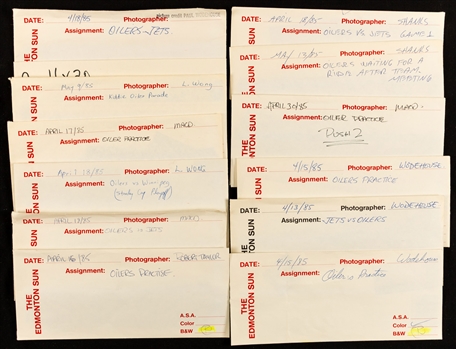 DATE: 4/18/85 Photographer:
Assignment: OILERS - JETS
DATE: May 9/85 Photographer: L. Wong
Assignment: Kiddie Oiler Parade
DATE: APRIL 17/85 Photographer: MACD
Assignment: OILER PRACTICE
DATE: April 18/85 Photographer: L. WONG
Assignment: Oilers vs Winnipeg
(Stanley Cup Playoff)
DATE: APRIL 18/85 Photographer:
Assignment: OILERS vs JETS
DATE: APRIL /85 Photographer: ROBERT TAYLOR
Assignment: OILERS PRACTICE.
THE EDMONTON SUN
A.S.A.
Color
B&W
THE EDMONTON SUN
DATE: APRIL /85 Photographer: SHANKS
Assignment: OILERS VS JETS GAME 1
DATE: MAY 13/85 Photographer: SHANKS
Assignment: OILERS WAITING FOR A
RIDE AFTER TEAM
MEETING
THE EDMONTON SUN
DATE: APRIL 30/85 Photographer: MACD.
Assignment: OILER PRACTICE
DATE: 4/15/85 Photographer: WODEHOUSE
Assignment: OILERS PRACTICE
DATE: 4/13/85 Photographer: WODEHOUSE
Assignment: JETS VS OILERS
DATE: 4/15/85 Photographer: Wodehouse
Assignment: Oilers Practice
THE EDMONTON SUN
A.S.A.
Color
B&W